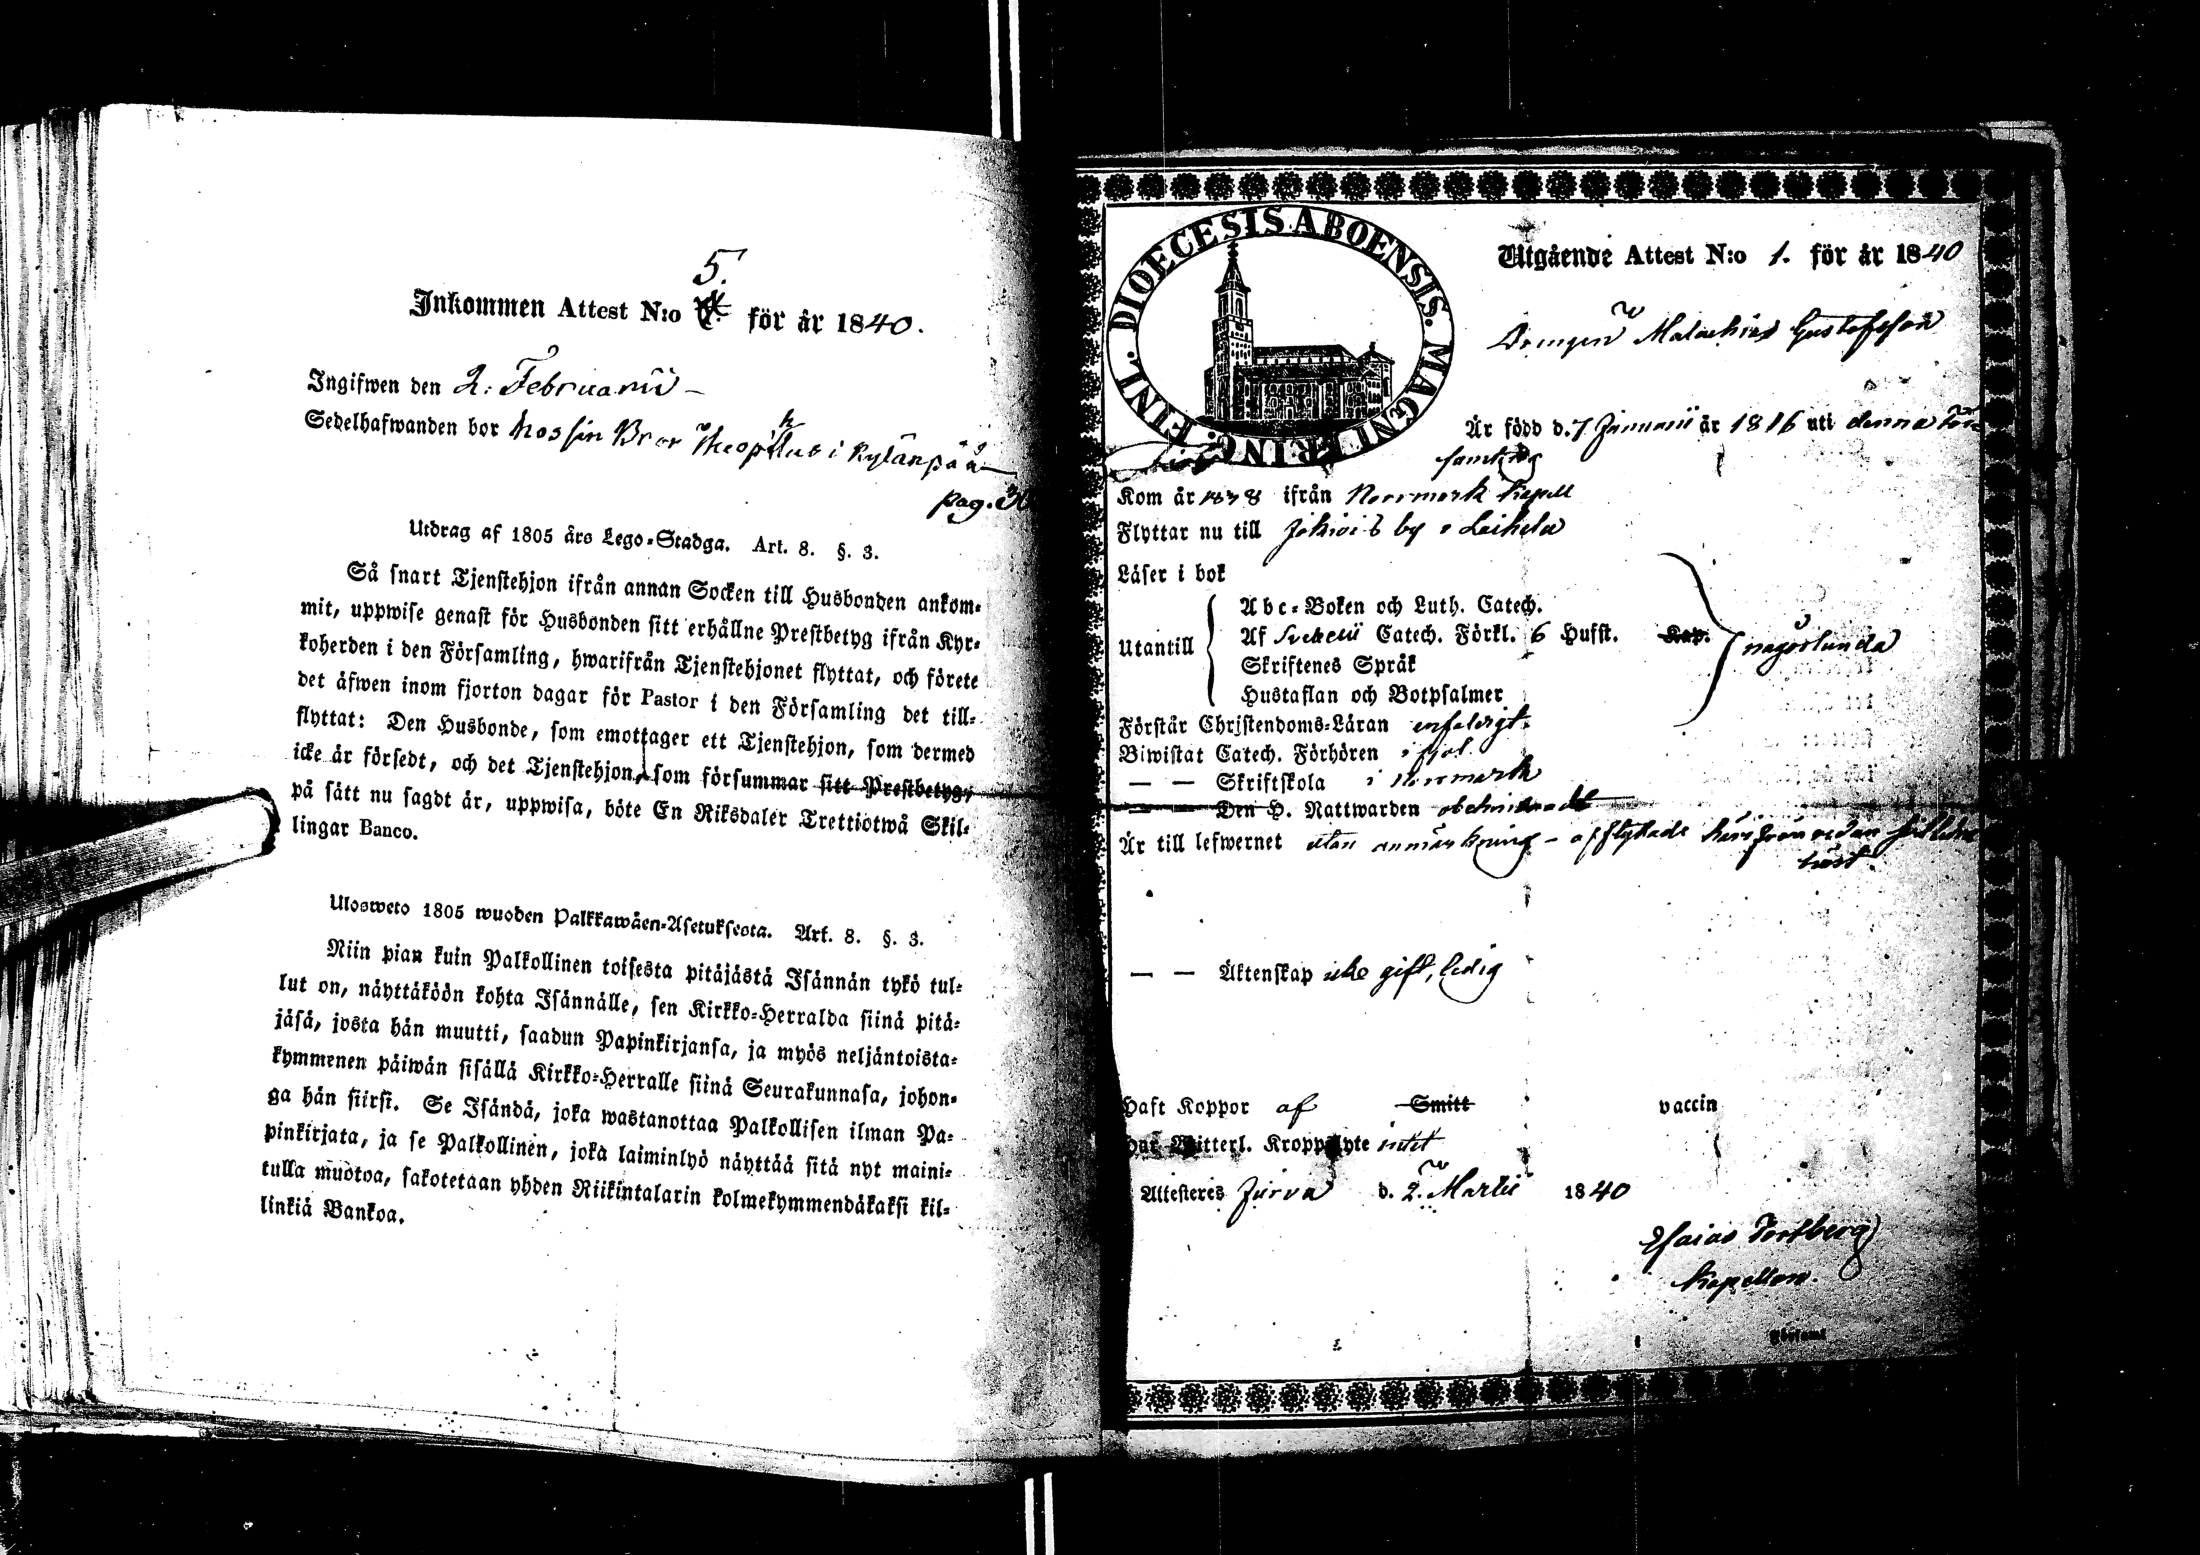 5.
Inkommen Attest N:o för år 1840.
Ingifwen den 2. Februarii –
Sedelhafwanden bor hos sin Bror Theophilus i Kylänpää
pag. 30
Utdrag af 1805 års Lego-Stadga. Art. 8. §. 3.
Så snart Tjenstehjon ifrån annan Socken till Husbonden ankom-
mit, uppwise genast för Husbonden sitt erhållne Prestbetyg ifrån Kyr-
koherden i den Församling, hwarifrån Tjenstehjonet flyttat, och förete
det äfwen inom fjorton dagar för Pastor i den Församling det till-
flyttat: Den Husbonde, som emottager ett Tjenstehjon, som dermed
icke är försedt, och det Tjenstehjon, som försummar sitt Prestbetyg,
på sätt nu sagdt är, uppwisa, böte En Riksdaler Trettiotwå Skil-
lingar Banco.
Ulosweto 1805 wuoden Palkkawäen-Asetuksesta. Art. 8. §. 3.
Niin pian kuin Palkollinen toisesta pitäjästä Isännän tykö tul-
lut on, näyttäköön kohta Isännälle, sen Kirkko-Herralda siinä pitä-
jäsä, josta hän muutti, saadun Papinkirjansa, ja myös neljäntoista-
kymmenen päiwän sisällä Kirkko-Herralle siinä Seurakunnasa, johon-
ga hän siirsi. Se Isändä, joka wastanottaa Palkollisen ilman Pa-
pinkirjata, ja se Palkollinen, joka laiminlyö näyttää sitä nyt maini-
tulla muotoa, sakotetaan yhden Riikintalarin kolmekymmendäkaksi kil-
linkiä Bankoa.
DIOECESIS ABOENSIS. MAGNI PRINC. FINL.
Utgående Attest N:o 1. för år 1840
Drengen Malachias Gustafsson
Är född d. 7 Januarii år 1816 uti denna För-
samling
Kom år 1838 ifrån Norrmark Kapell
Flyttar nu till Jokiois by i Laihela
Läser i bok
Utantill
Abc-Boken och Luth. Catech.
Af Svebelii Catech. Förkl. 6 Hufst. Kap.
Skriftenes Språk
Hustaflan och Botpsalmer
någorlunda
Förstår Christendoms-Läran enfaldigt.
Biwistat Catech. Förhören i fjol.
— — Skriftskola i Norrmark
— — Den H. Nattwarden obehindradt
Är till lefwernet utan anmärkning – afflyttade härifrån redan
höst
— — Äktenskap icke gift, ledig
Haft Koppor af Smitt vaccin
Har Witterl. Kroppslyte intet
Attesteres Jurva d. 2. Martii 1840
Esaias Fortberg
Kapellan.